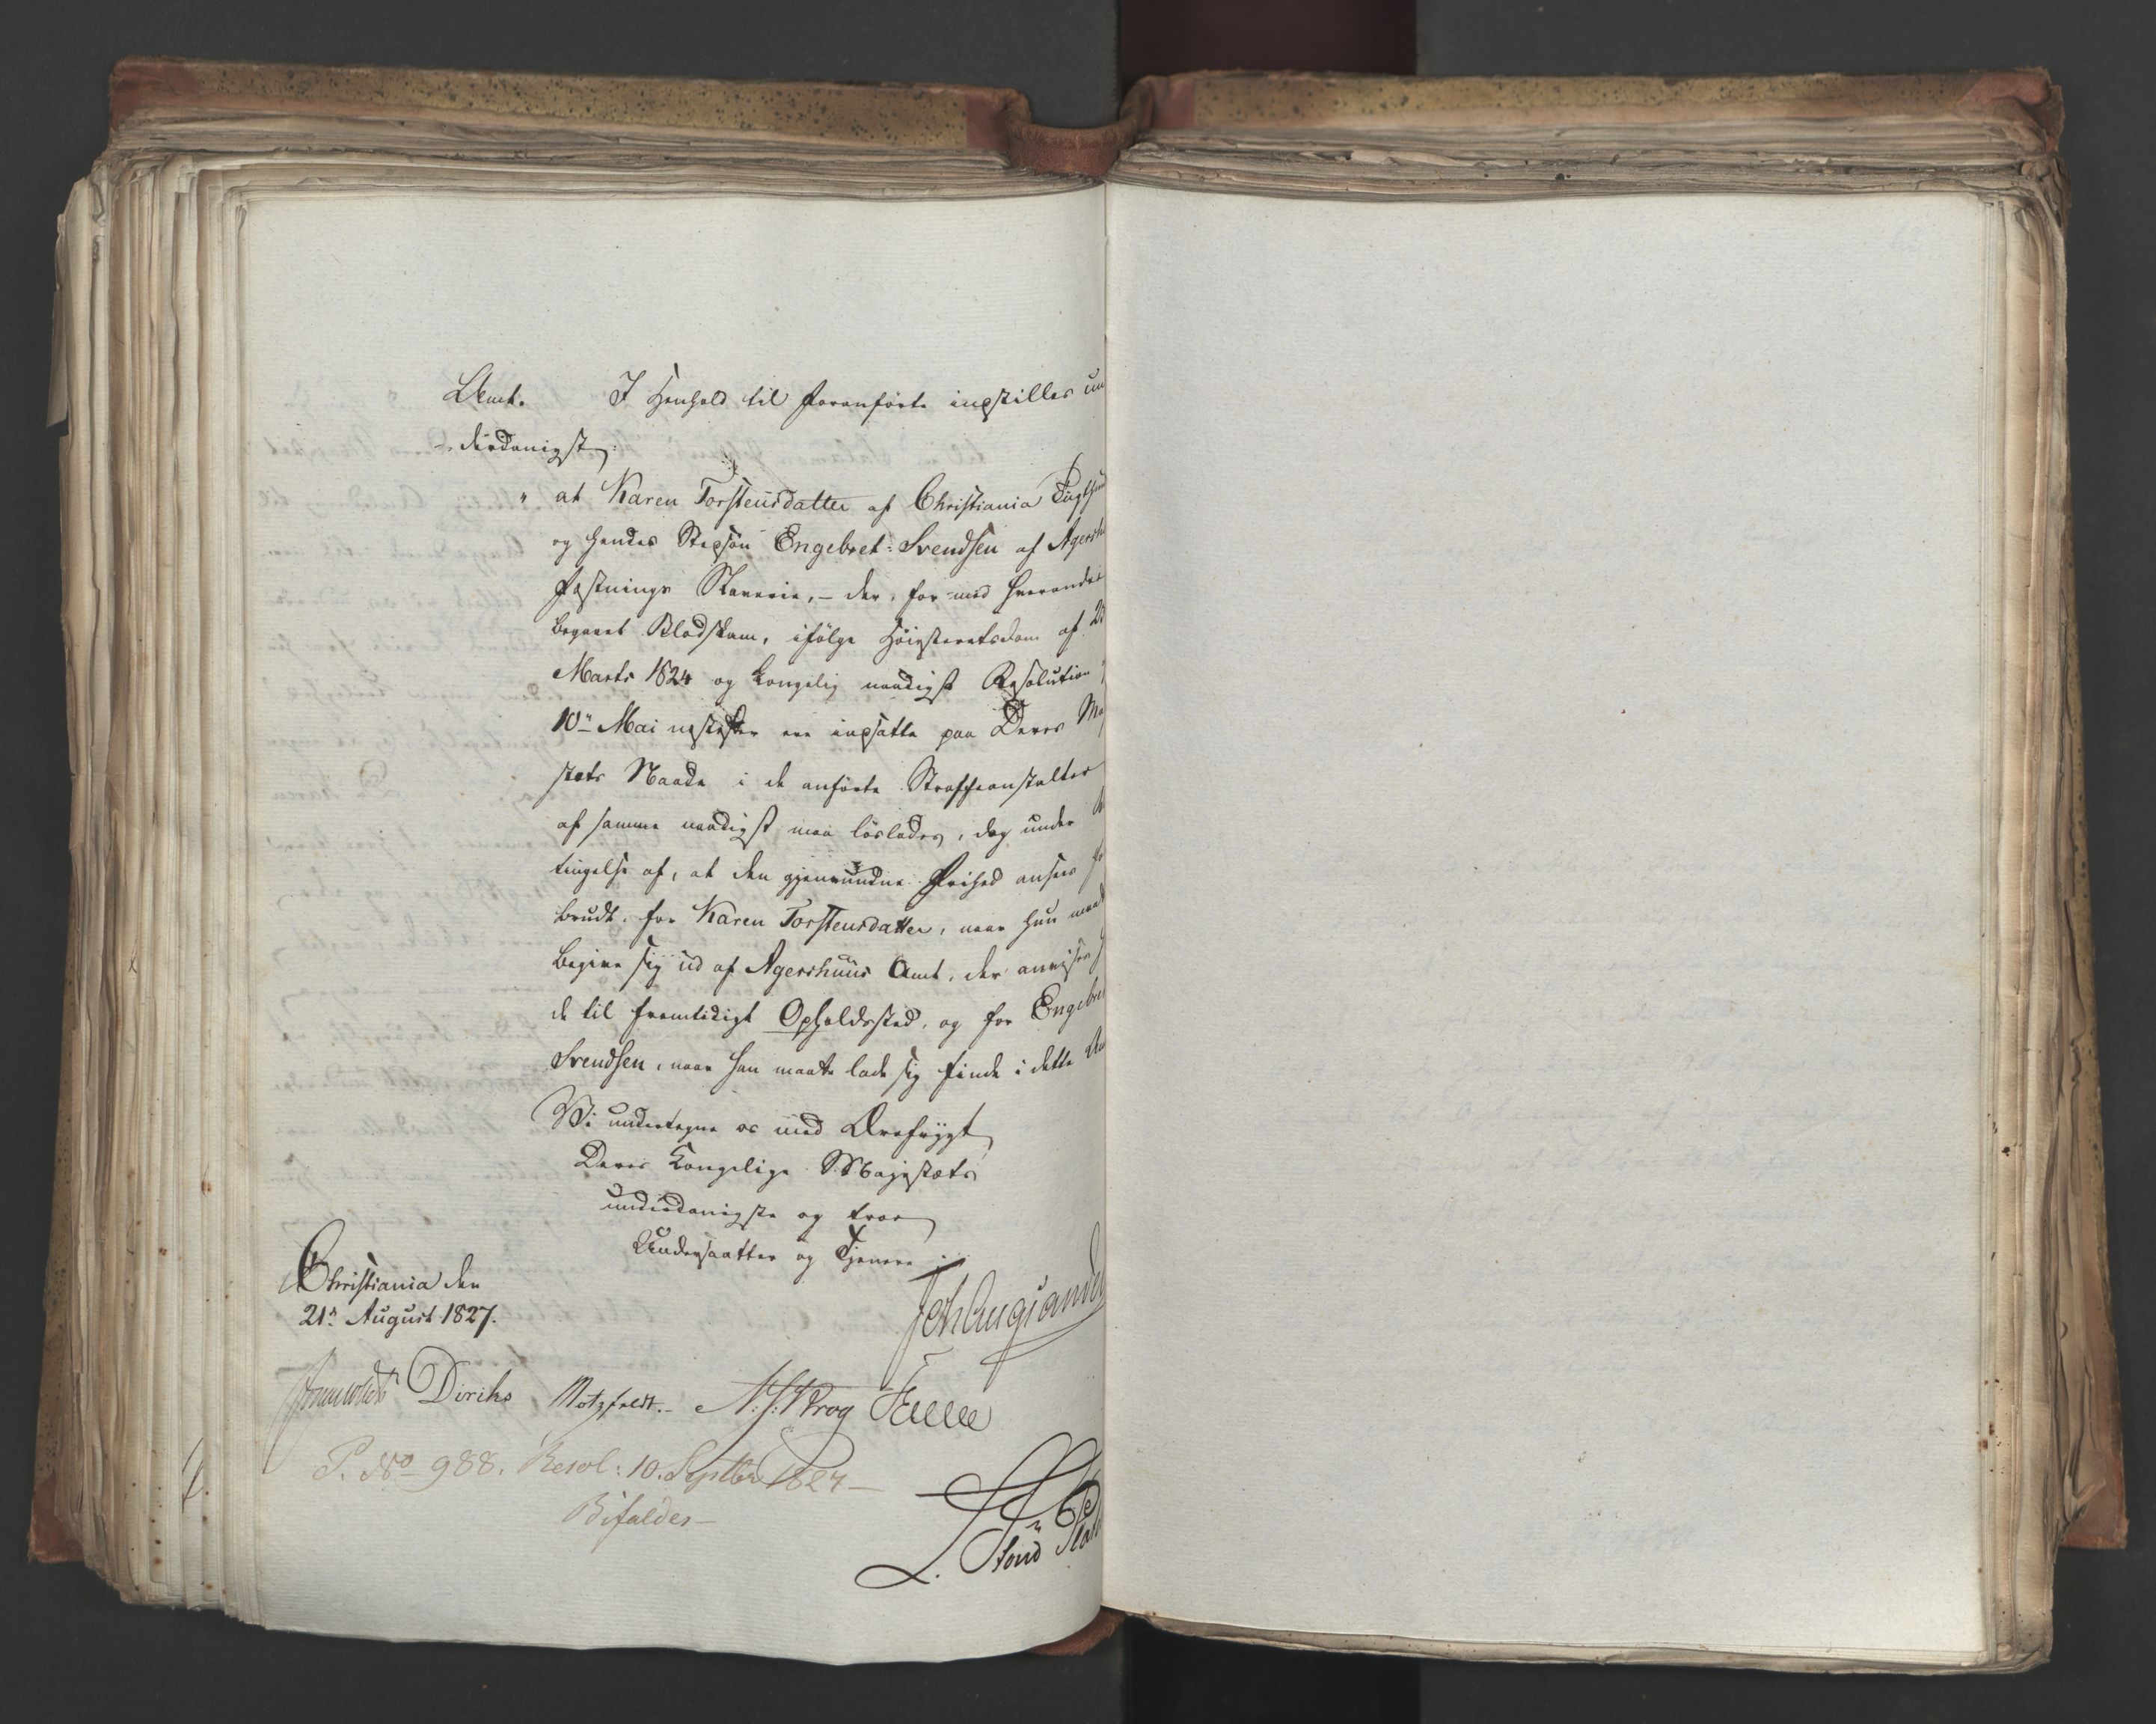 Amt. I Henhold til Foranförte indstilles un
-derdanigst:
" at Karen Torstensdatter af Christiania Tugthuus
og hendes Stepsøn Engebret Svendsen af Agersh
Fæstnings Slaverie, – der, for med hverandre
begaaet Blodskam, ifölge Höiesteretsdom af 23
Marts 1824 og Kongelig naadigst Resolution
10de Mai næstefter ere indsatte paa Deres Ma
stæts Naade i de anförte Straffeanstalter
af samme naadigst maa löslades, dog under
tingelse af, at den gjenvundne Frihed ansees for
brudt, for Karen Torstensdatter, naar hun maatte
begive sig ud af Agershuus Amt, der anvises
de til fremtidigt Opholdssted, og for Engebret
Svendsen, naar han maatte lade sig finde i dette Am
Vi undertegne os med Ærefrygt
Deres Kongelige Majestæts
underdanigste og troe
Undersaatter og Tjenere
Christiania den
21de August 1827.
Joh Aug Sande
Diriks Motzfeldt. N: J: Krog Falle
P. No 988. Resol: 10. Septbr 1827 –
Bifaldes –
L.